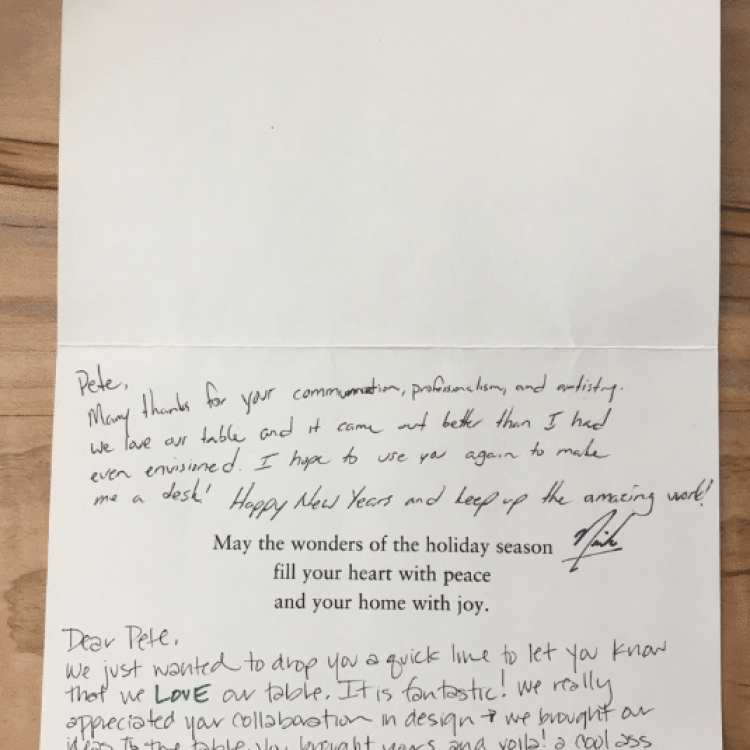 Pete,
Many thanks for your communication, professionalism, and artistry.
We love our table and it came out better than I had
even envisioned. I hope to use you again to make
me a desk! Happy New Years and keep up the amazing work!
May the wonders of the holiday season
fill your heart with peace
and your home with joy.
Dear Pete,
We just wanted to drop you a quick line to let you know
that we LOVE our table. It is fantastic! We really
appreciated your collaboration in design + we brought our
ideas to the table, you brought yours and voila! a cool ass